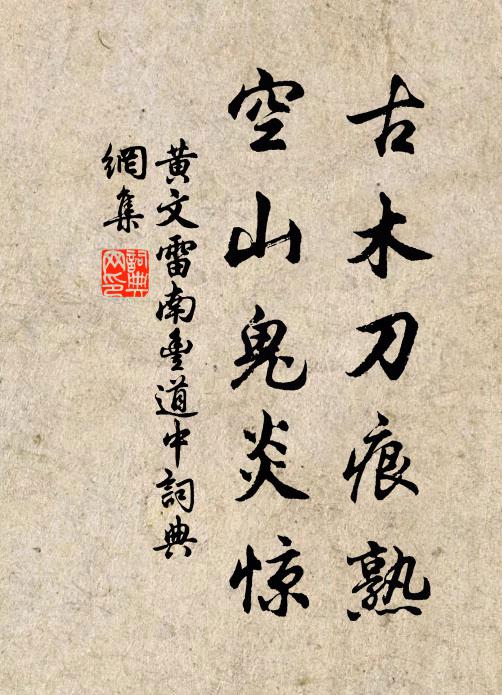 古木刀痕熟
空山鬼炎惊
黄文雷南豊道中詞典
網集
詞典
网印